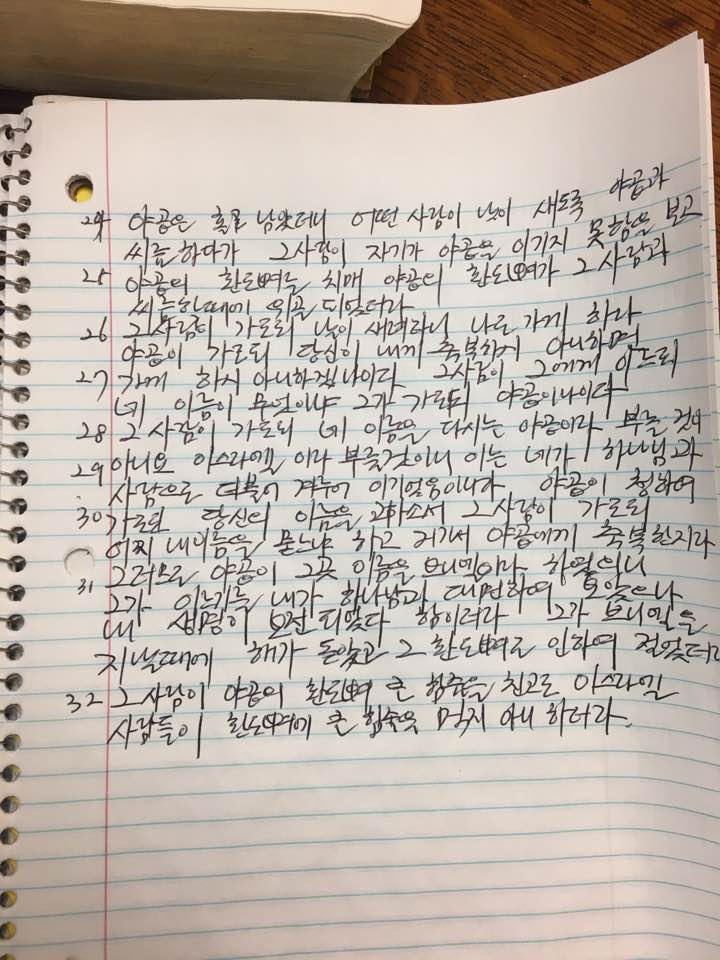 24 야곱은 홀로 남았더니 어떤 사람이 날이 새도록 야곱과
씨름하다가 그사람이 자기가 야곱을 이기지 못함을 보고
25 야곱의 환도뼈를 치매 야곱의 환도뼈가 그 사람과
씨름할때에 위골 되었더라
26 그 사람이 가로되 날이 새려하니 나로 가게 하라
야곱이 가로되 당신이 내게 축복하지 아니하면
27 가게 하지 아니하겠나이다 그사람이 그에게 이르되
네 이름이 무엇이냐 그가 가로되 야곱이니이다
28 그 사람이 가로되 네 이름을 다시는 야곱이라 부를 것이
29 아니요 이스라엘 이라 부를것이니 이는 네가 하나님과
사람으로 더불어 겨루어 이기었음이니라 야곱이 청하여
30 가로되 당신의 이름을 고하소서 그 사람이 가로되
어찌 내이름을 묻느냐 하고 거기서 야곱에게 축복한지라
31 그러므로 야곱이 그곳 이름을 브니엘이라 하였으니
그가 이르기를 내가 하나님과 대면하여 보았으나
내 생명이 보전 되었다 함이더라 그가 브니엘을
지날때에 해가 돋았고 그 환도뼈로 인하여 절었더라
32 그 사람이 야곱의 환도뼈 큰 힘줄을 친고로 이스라엘
사람들이 환도뼈에 큰 힘줄을 먹지 아니 하더라.